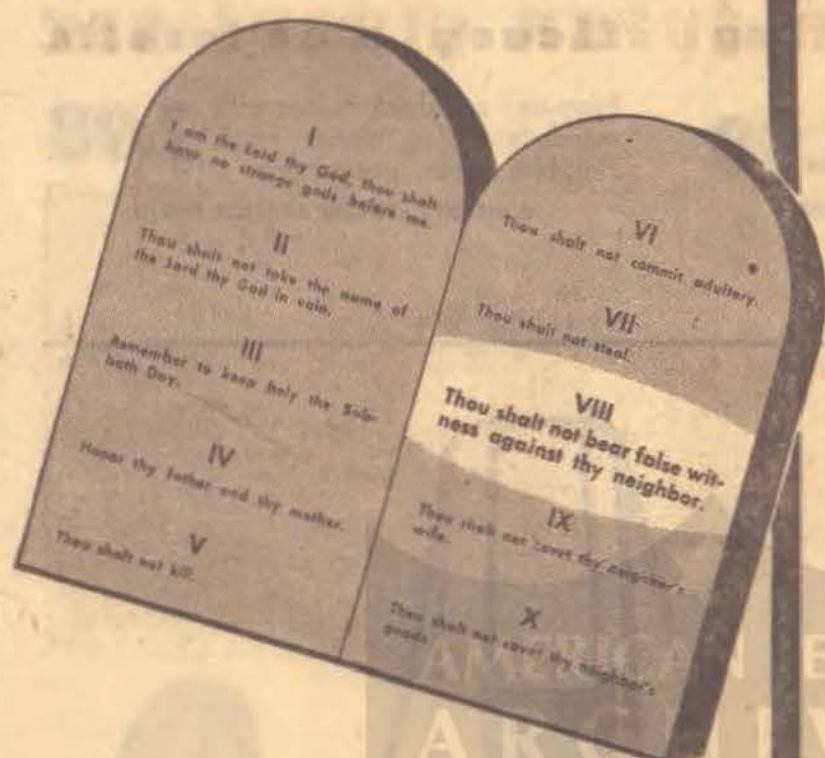 I
I am the Lord thy God, thou shalt
have no strange gods before me.
II
Thou shalt not take the name of
the Lord thy God in vain.
III
Remember to keep holy the Sab-
bath Day.
IV
Honor thy father and thy mother.
V
Thou shalt not kill.
VI
Thou shalt not commit adultery.
VII
Thou shalt not steal.
VIII
Thou shalt not bear false wit-
ness against thy neighbor.
IX
Thou shalt not covet thy neighbor's
wife.
X
Thou shalt not covet thy neighbor's
goods.
AMERICAN
ARCHIV